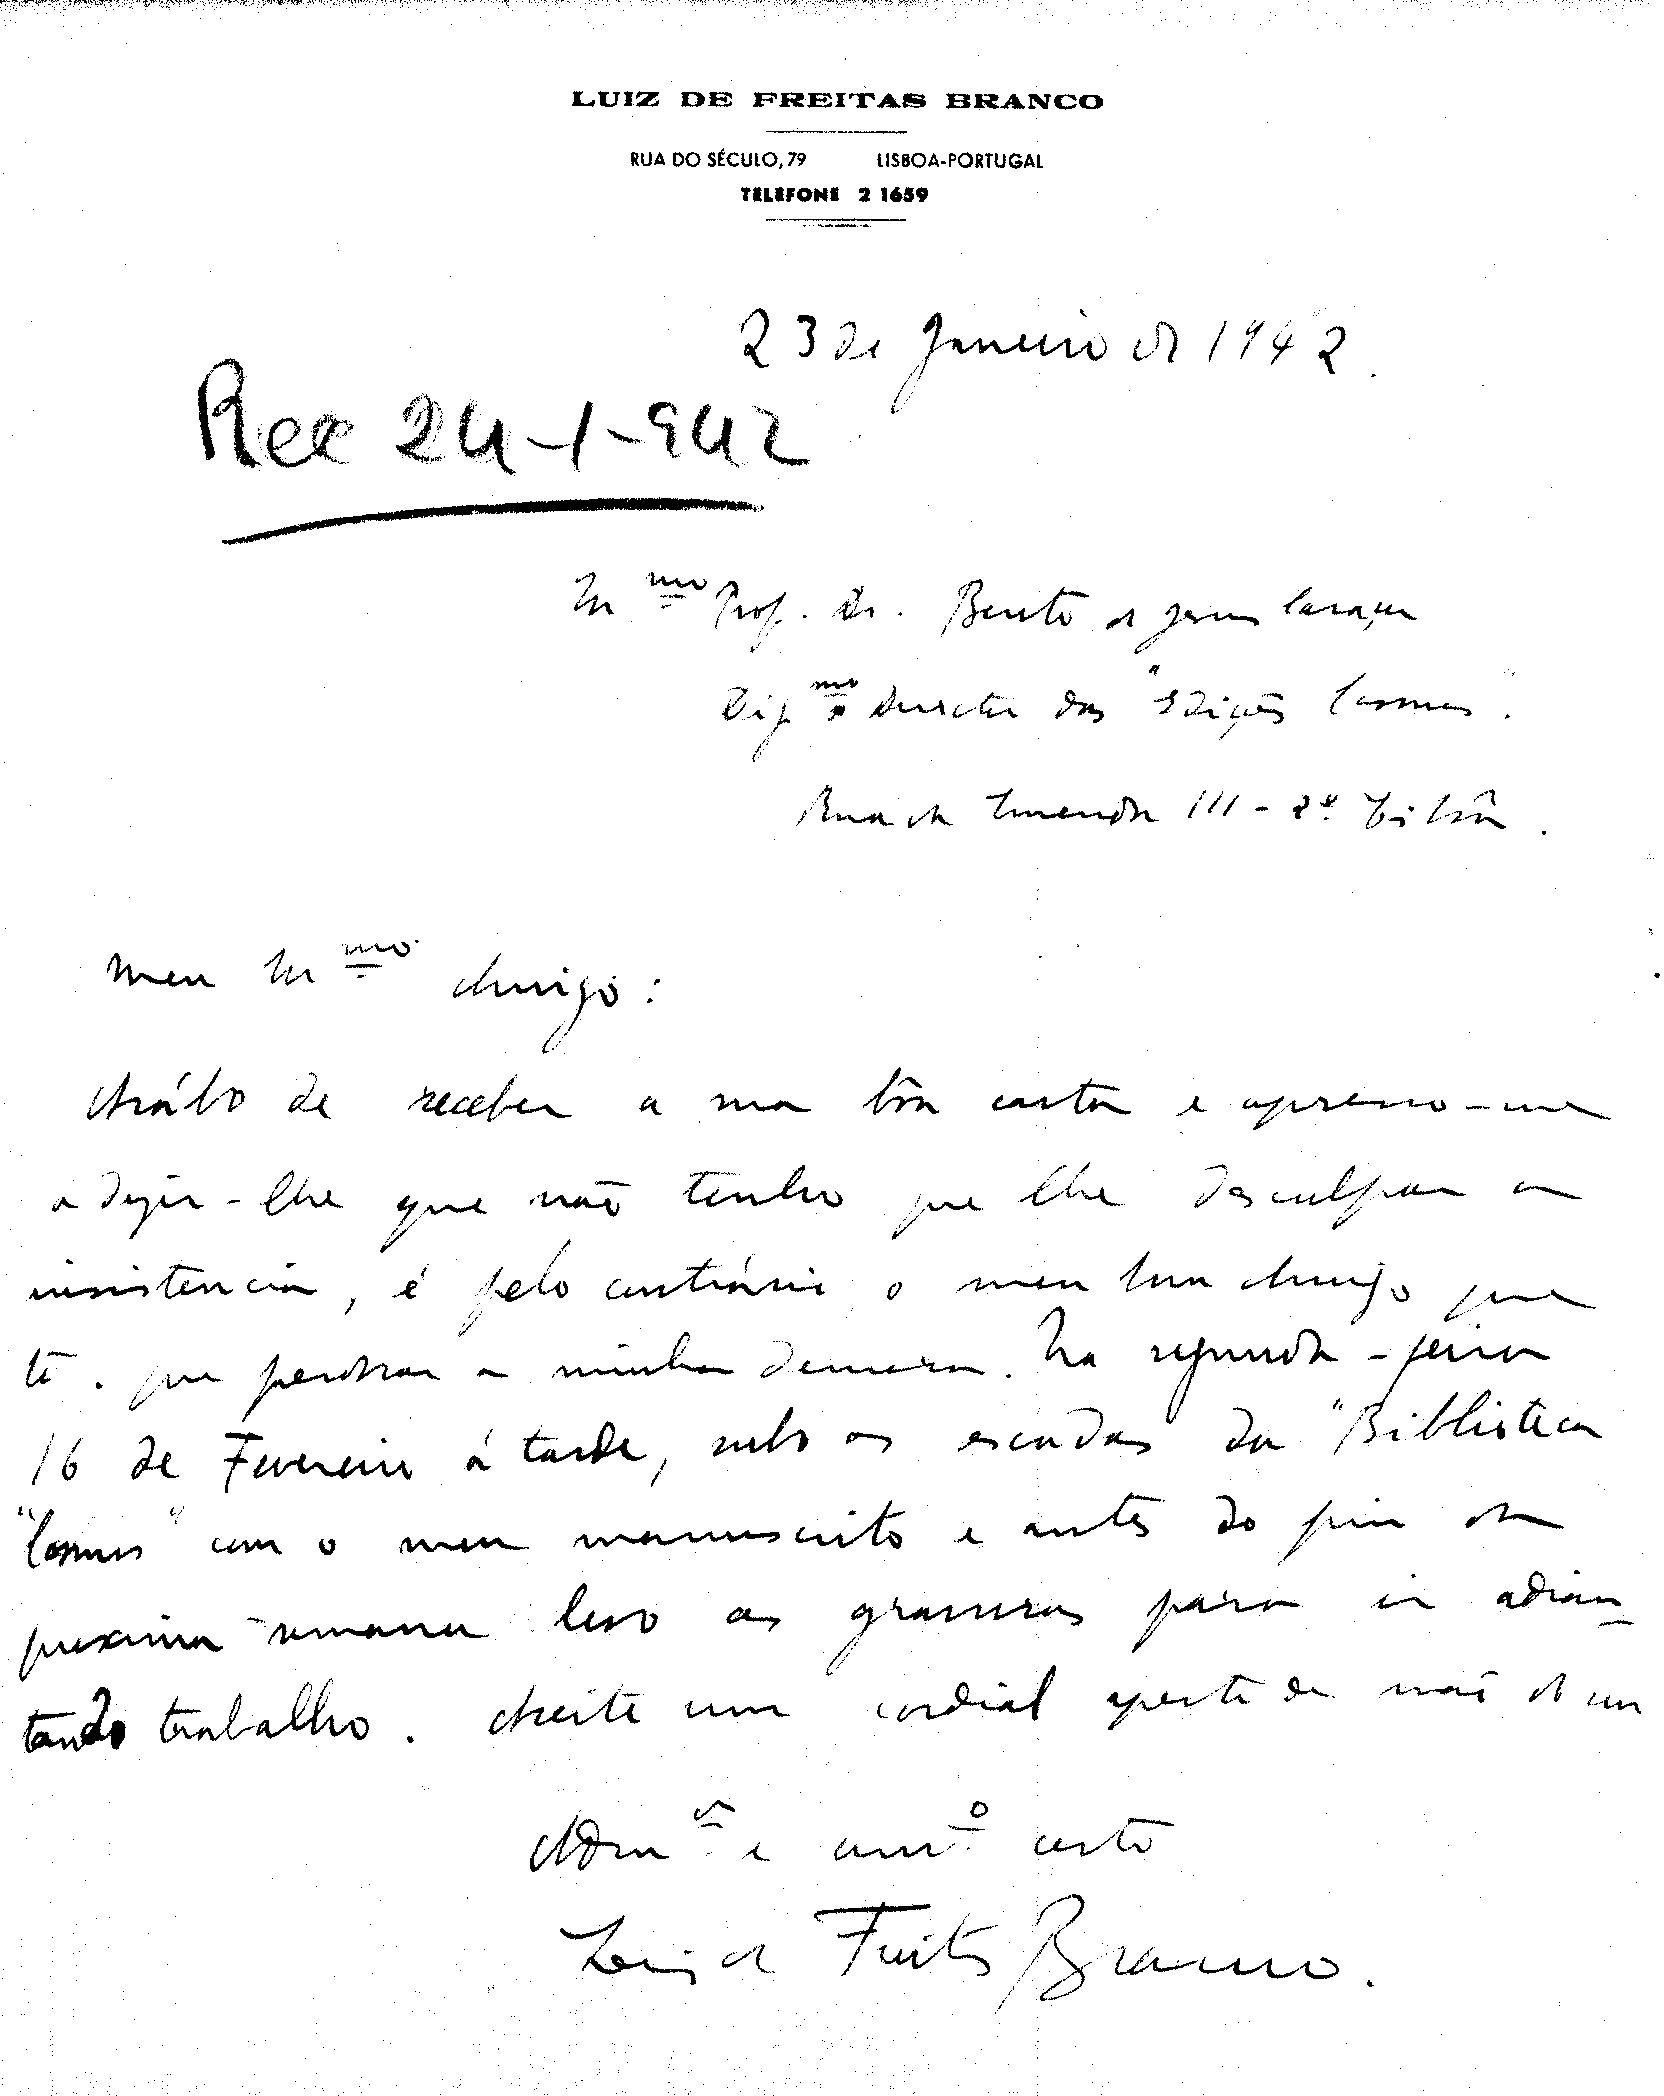 LUIZ DE FREITAS BRANCO
RUA DO SÉCULO, 79 LISBOA-PORTUGAL
TELEFONE 2 1659
23 de Janeiro de 1942.
Rec 24-1-942
Prof. Dr. Bento de Jesus Caraça
Dig.mo Director das "Edições Cosmos".
Rua da Emenda 111 - 2º Lisbôa.
Meu Amigo:
Acábo de receber a sua bôa carta e apresso-me
a dizer-lhe que não tenho que lhe desculpar a
insistencia, é pelo contrário o meu bom Amigo que
tem que perdoar a minha demora. Na segunda-feira
16 de Fevereiro á tarde, subo as escadas da "Biblioteca
"Cosmos" com o meu manuscrito e antes do fim da
proxima semana levo as gravuras para ir adian-
tando trabalho. Aceite um cordial aperto de mão de um
Adm.or e am.º certo
Luiz de Freitas Branco.